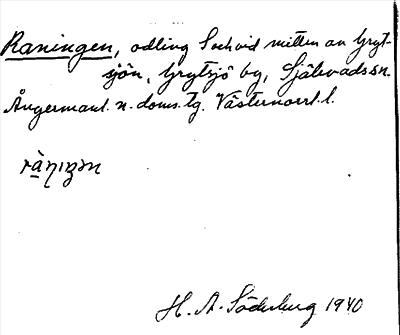 Raningen, odling Soch vid mitten av Gryt-
sjön, Grytsjö by, Själevads sn.
Ångermanl. n. doms. tg. Västernorrl. l.
H. A. Söderberg 1940